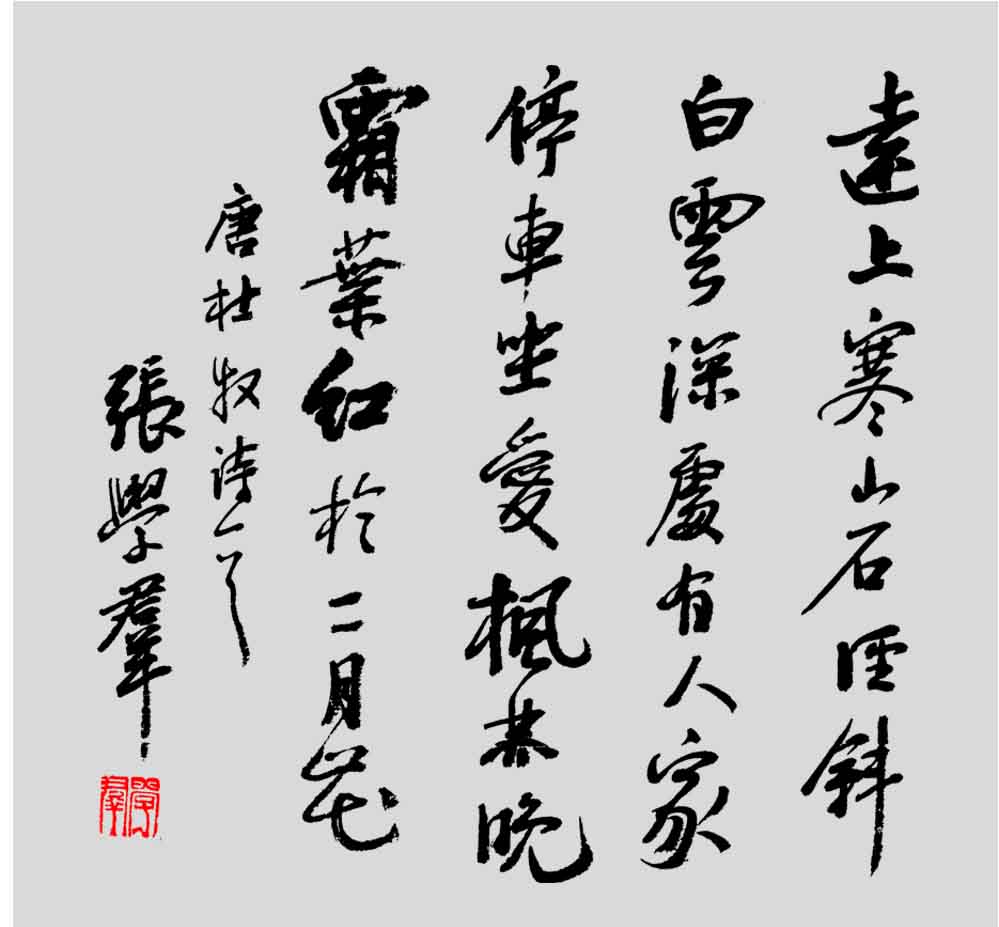 遠上寒山石徑斜
白雲深處有人家
停車坐愛楓林晚
霜葉紅於二月花
唐杜牧詩一首
張學羣
學羣